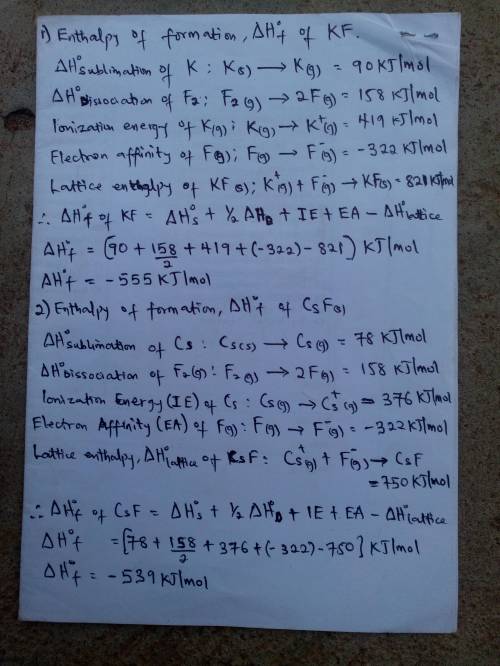 1) Enthalpy of formation, ΔH°f of KF.
ΔH°sublimation of K : K(s) → K(g) = 90 KJ/mol
ΔH°Dissociation of F2; F2(g) → 2F(g) = 158 KJ/mol
Ionization energy of K(g); K(g) → K⁺(g) = 419 KJ/mol
Electron affinity of F(g); F(g) → F⁻(g) = -322 KJ/mol
Lattice enthalpy of KF(s); K⁺(g) + F⁻(g) → KF(s) = 821 KJ/mol
∴ ΔH°f of KF = ΔH°s + 1/2 ΔHD + IE + EA - ΔH°lattice
ΔH°f = [90 + 158/2 + 419 + (-322) - 821] KJ/mol
ΔH°f = -555 KJ/mol
2) Enthalpy of formation, ΔH°f of CsF(s)
ΔH°sublimation of Cs : Cs(s) → Cs(g) = 78 KJ/mol
ΔH°Dissociation of F2(g) : F2(g) → 2F(g) = 158 KJ/mol
Ionization Energy (IE) of Cs : Cs(g) → Cs⁺(g) = 376 KJ/mol
Electron Affinity (EA) of F(g) : F(g) → F⁻(g) = -322 KJ/mol
Lattice enthalpy, ΔH°lattice of CsF : Cs⁺(g) + F⁻(g) → CsF
= 750 KJ/mol
∴ ΔH°f of CsF = ΔH°s + 1/2 ΔH°D + IE + EA - ΔH°lattice
ΔH°f = [78 + 158/2 + 376 + (-322) - 750] KJ/mol
ΔH°f = -539 KJ/mol